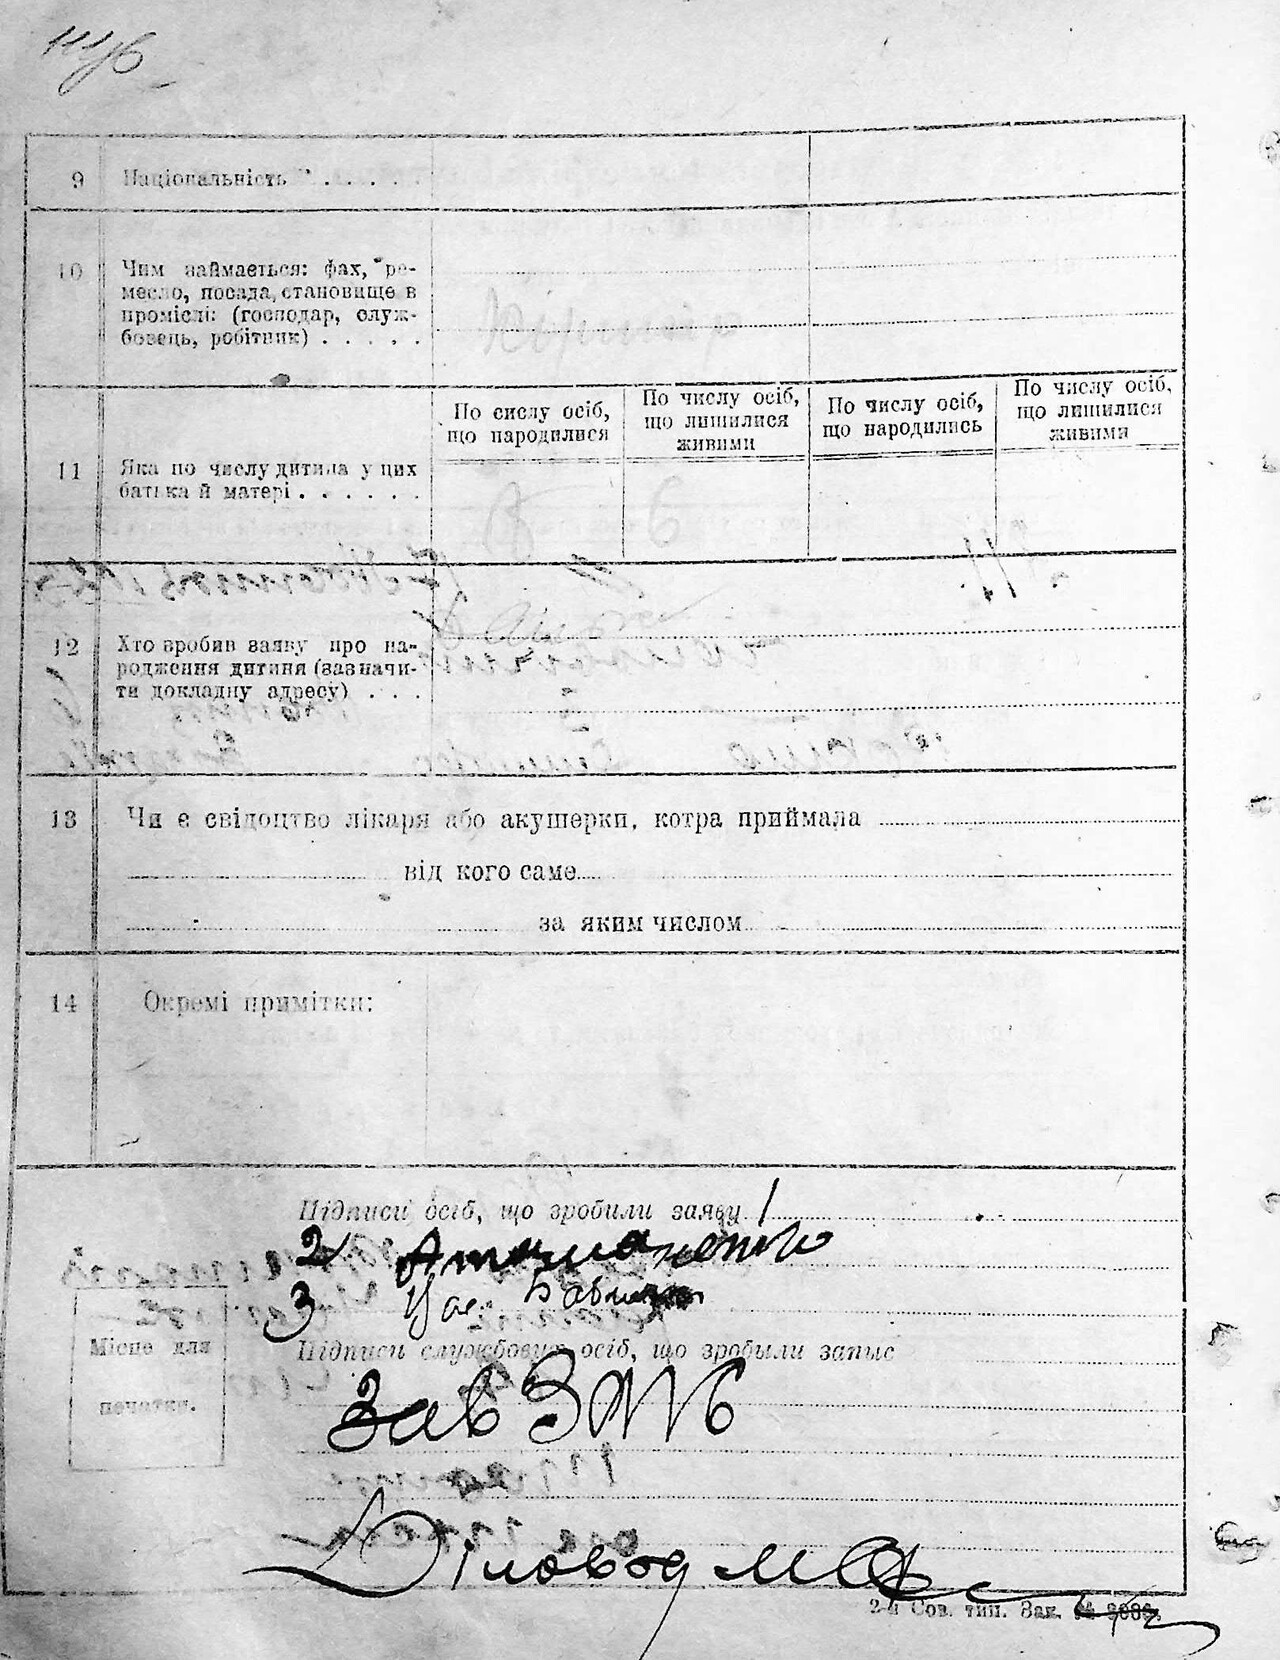 9 Національність
10 Чим займається: фах, ре-
месло, посада, становище в
промислі: (господар, служ-
бовець, робітник)
По сислу осіб,
що народилися
По числу осіб,
що лишилися
живими
По числу осіб,
що народились
По числу осіб,
що лишилися
живими
11 Яка по числу дитина у цих
батька й матері
6
12 Хто зробив заяву про на-
родження дитини (зазначи-
ти докладну адресу)
13 Чи є свідоцтво лікаря або акушерки, котра приймала
від кого саме
за яким числом
14 Окремі примітки:
Підписи осіб, що зробили заяву 1
2
3
Підписи службових осіб, що зробыли запыс
Місце для
печатки.
Зав
Діловод
2-я Сов. тип. Зак.